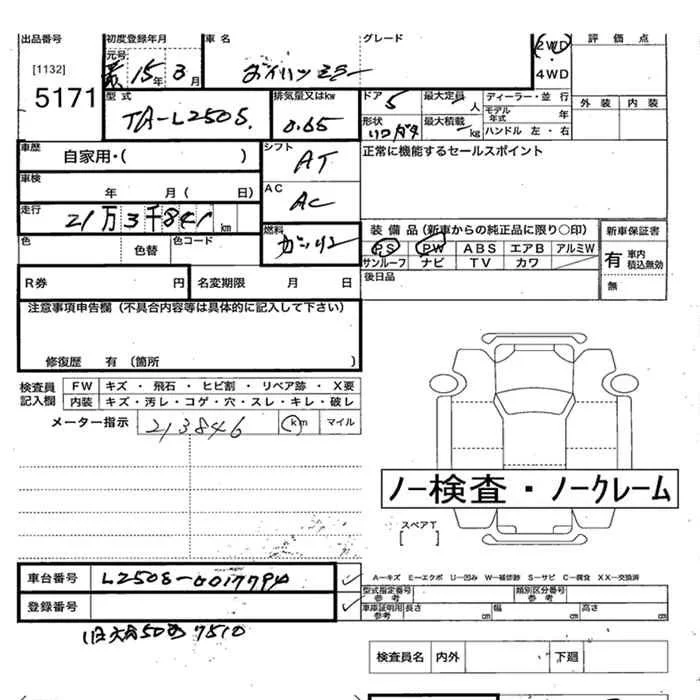 出品番号 初度登録年月 車名 グレード 2WD 評価点
元号
[1132] 15年 8月 ダイハツ ミラー 4WD
5171 型式 排気量又はkw ドア 5 最大定員 人 ディーラー・並行 外装 内装
TA-L250S 0.65 形状 最大積載 kg モデル年式 年
ハンドル 左・右
車歴 自家用・( ) シフト AT 正常に機能するセールスポイント
車検 年 月( 日) AC AC
走行 21万3千841km 燃料 ガソリン 装備品(新車からの純正品に限り○印) 新車保証書
色 色替 色コード PS PW ABS エアB アルミW 有 車内積込無効
サンルーフ ナビ TV カワ
R券 円 名変期限 月 日 後日品 無
注意事項申告欄(不具合内容等は具体的に記入して下さい)
修復歴 有(箇所 )
検査員 FW キズ・飛石・ヒビ割・リペア跡・X要
記入欄 内装 キズ・汚レ・コゲ・穴・スレ・キレ・破レ
メーター指示 213846 km マイル
ノー検査・ノークレーム
スペアT
[ ]
車台番号 L250S-0017794 A−キズ E−エクボ U−凹み W−補修跡 S−サビ C−腐食 XX−交換済
型式指定番号 参考 類別区分番号 参考
登録番号 車庫証明用 参考 長さ cm 幅 cm 高さ cm
7510
検査員名 内外 下廻